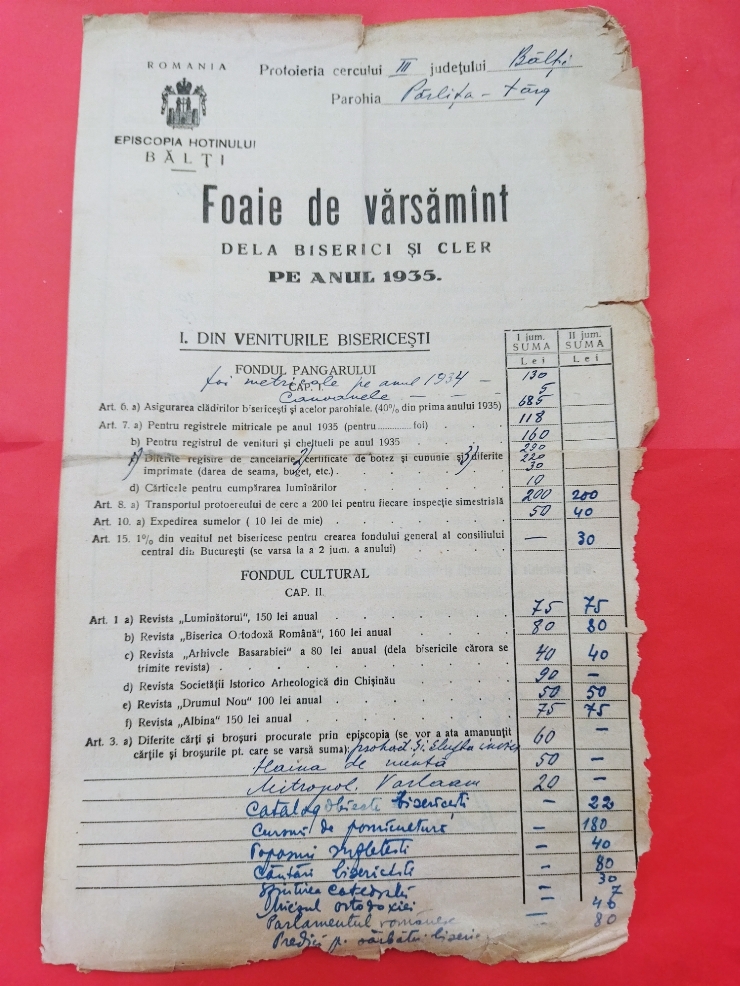 ROMANIA
Protoieria cercului III județului Bălți
Parohia Pârlița - târg
EPISCOPIA HOTINULUI
BĂLȚI
Foaie de vărsămînt
DELA BISERICI ȘI CLER
PE ANUL 1935.
I. DIN VENITURILE BISERICEȘTI
I jum. SUMA Lei
II jum. SUMA Lei
FONDUL PANGARULUI
foi metricale pe anul 1934 — 130
CAP. I.
Canoanele — — 5
Art. 6. a) Asigurarea clădirilor bisericești și acelor parohiale. (40% din prima anului 1935) 685
Art. 7. a) Pentru registrele mitricale pe anul 1935 (pentru ........ foi) 118
b) Pentru registrul de venituri și cheltueli pe anul 1935 160
1) Diferite registre de cancelarie, 2) certificate de botez și cununie și 3) diferite
imprimate (darea de seama, buget, etc.) 220 30
d) Cărticele pentru cumpărarea luminărilor 10
Art. 8. a) Transportul protoereului de cerc a 200 lei pentru fiecare inspecție simestrială 200 200
Art. 10. a) Expedirea sumelor ( 10 lei de mie) 50 40
Art. 15. 1% din venitul net bisericesc pentru crearea fondului general al consiliului
central din București (se varsa la a 2 jum. a anului) — 30
FONDUL CULTURAL
CAP. II.
Art. 1 a) Revista „Luminătorul", 150 lei anual 75 75
b) Revista „Biserica Ortodoxă Română", 160 lei anual 80 80
c) Revista „Arhivele Basarabiei" a 80 lei anual (dela bisericile cărora se
trimite revista) 40 40
d) Revista Societății Istorico Arheologică din Chișinău 90 —
e) Revista „Drumul Nou" 100 lei anual 50 50
f) Revista „Albina" 150 lei anual 75 75
Art. 3. a) Diferite cărți și broșuri procurate prin episcopia (se vor a ata amanunțit
cărțile și broșurile pt. care se varsă suma): prohod 60 —
Haina de nuntă 50 —
Mitropol. Varlaam 20 —
Catalog obiecte bisericești — 22
Cursuri de pomicultură — 180
— 40
Cântări bisericești — 80
30
— 7
ortodoxiei 46
Parlamentul românesc — 80
Predici p.